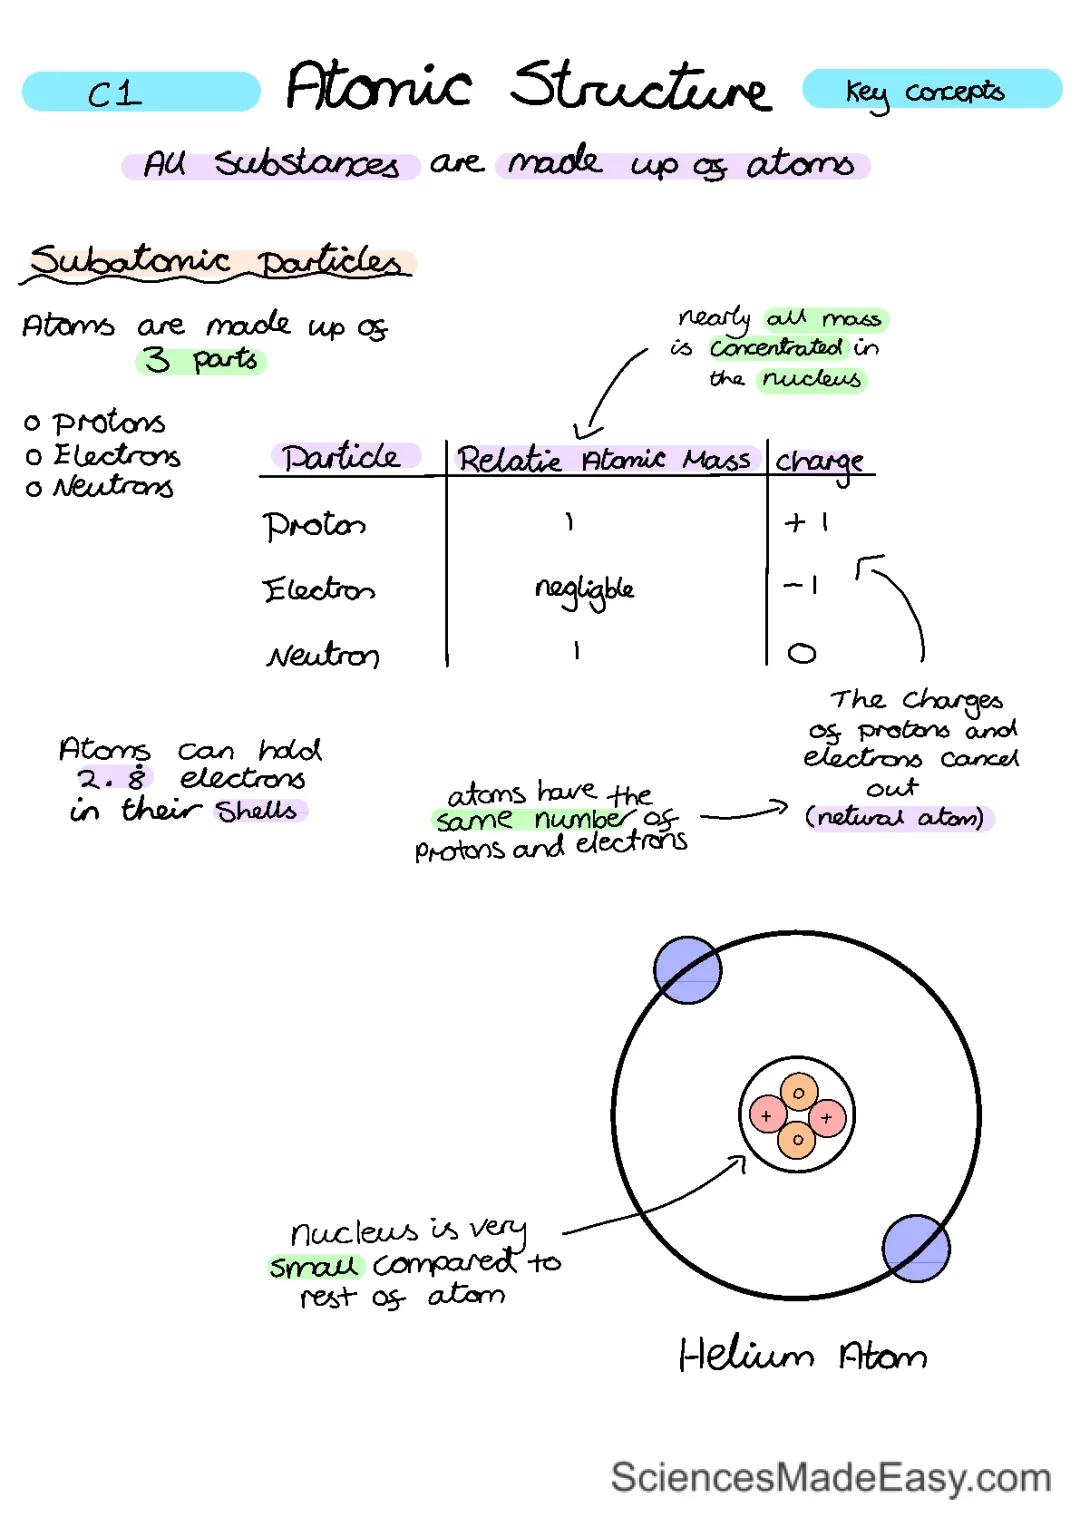 C1
Atomic Structure
Key concepts
All substances are made up of atoms
Subatomic particles
Atoms are made up of
3 parts
nearly all mass
is concentrated in
the nucleus
o Protons
o Electrons
o Neutrons
Particle Relatie Atomic Mass charge
Proton 1 +1
Electron negligble -1
Neutron 1 0
The charges
of protons and
electrons cancel
out
(netural atom)
Atoms can hold
2.8 electrons
in their shells
atoms have the
same number of
protons and electrons
o
+ +
o
nucleus is very
small compared to
rest of atom
Helium Atom
SciencesMadeEasy.com